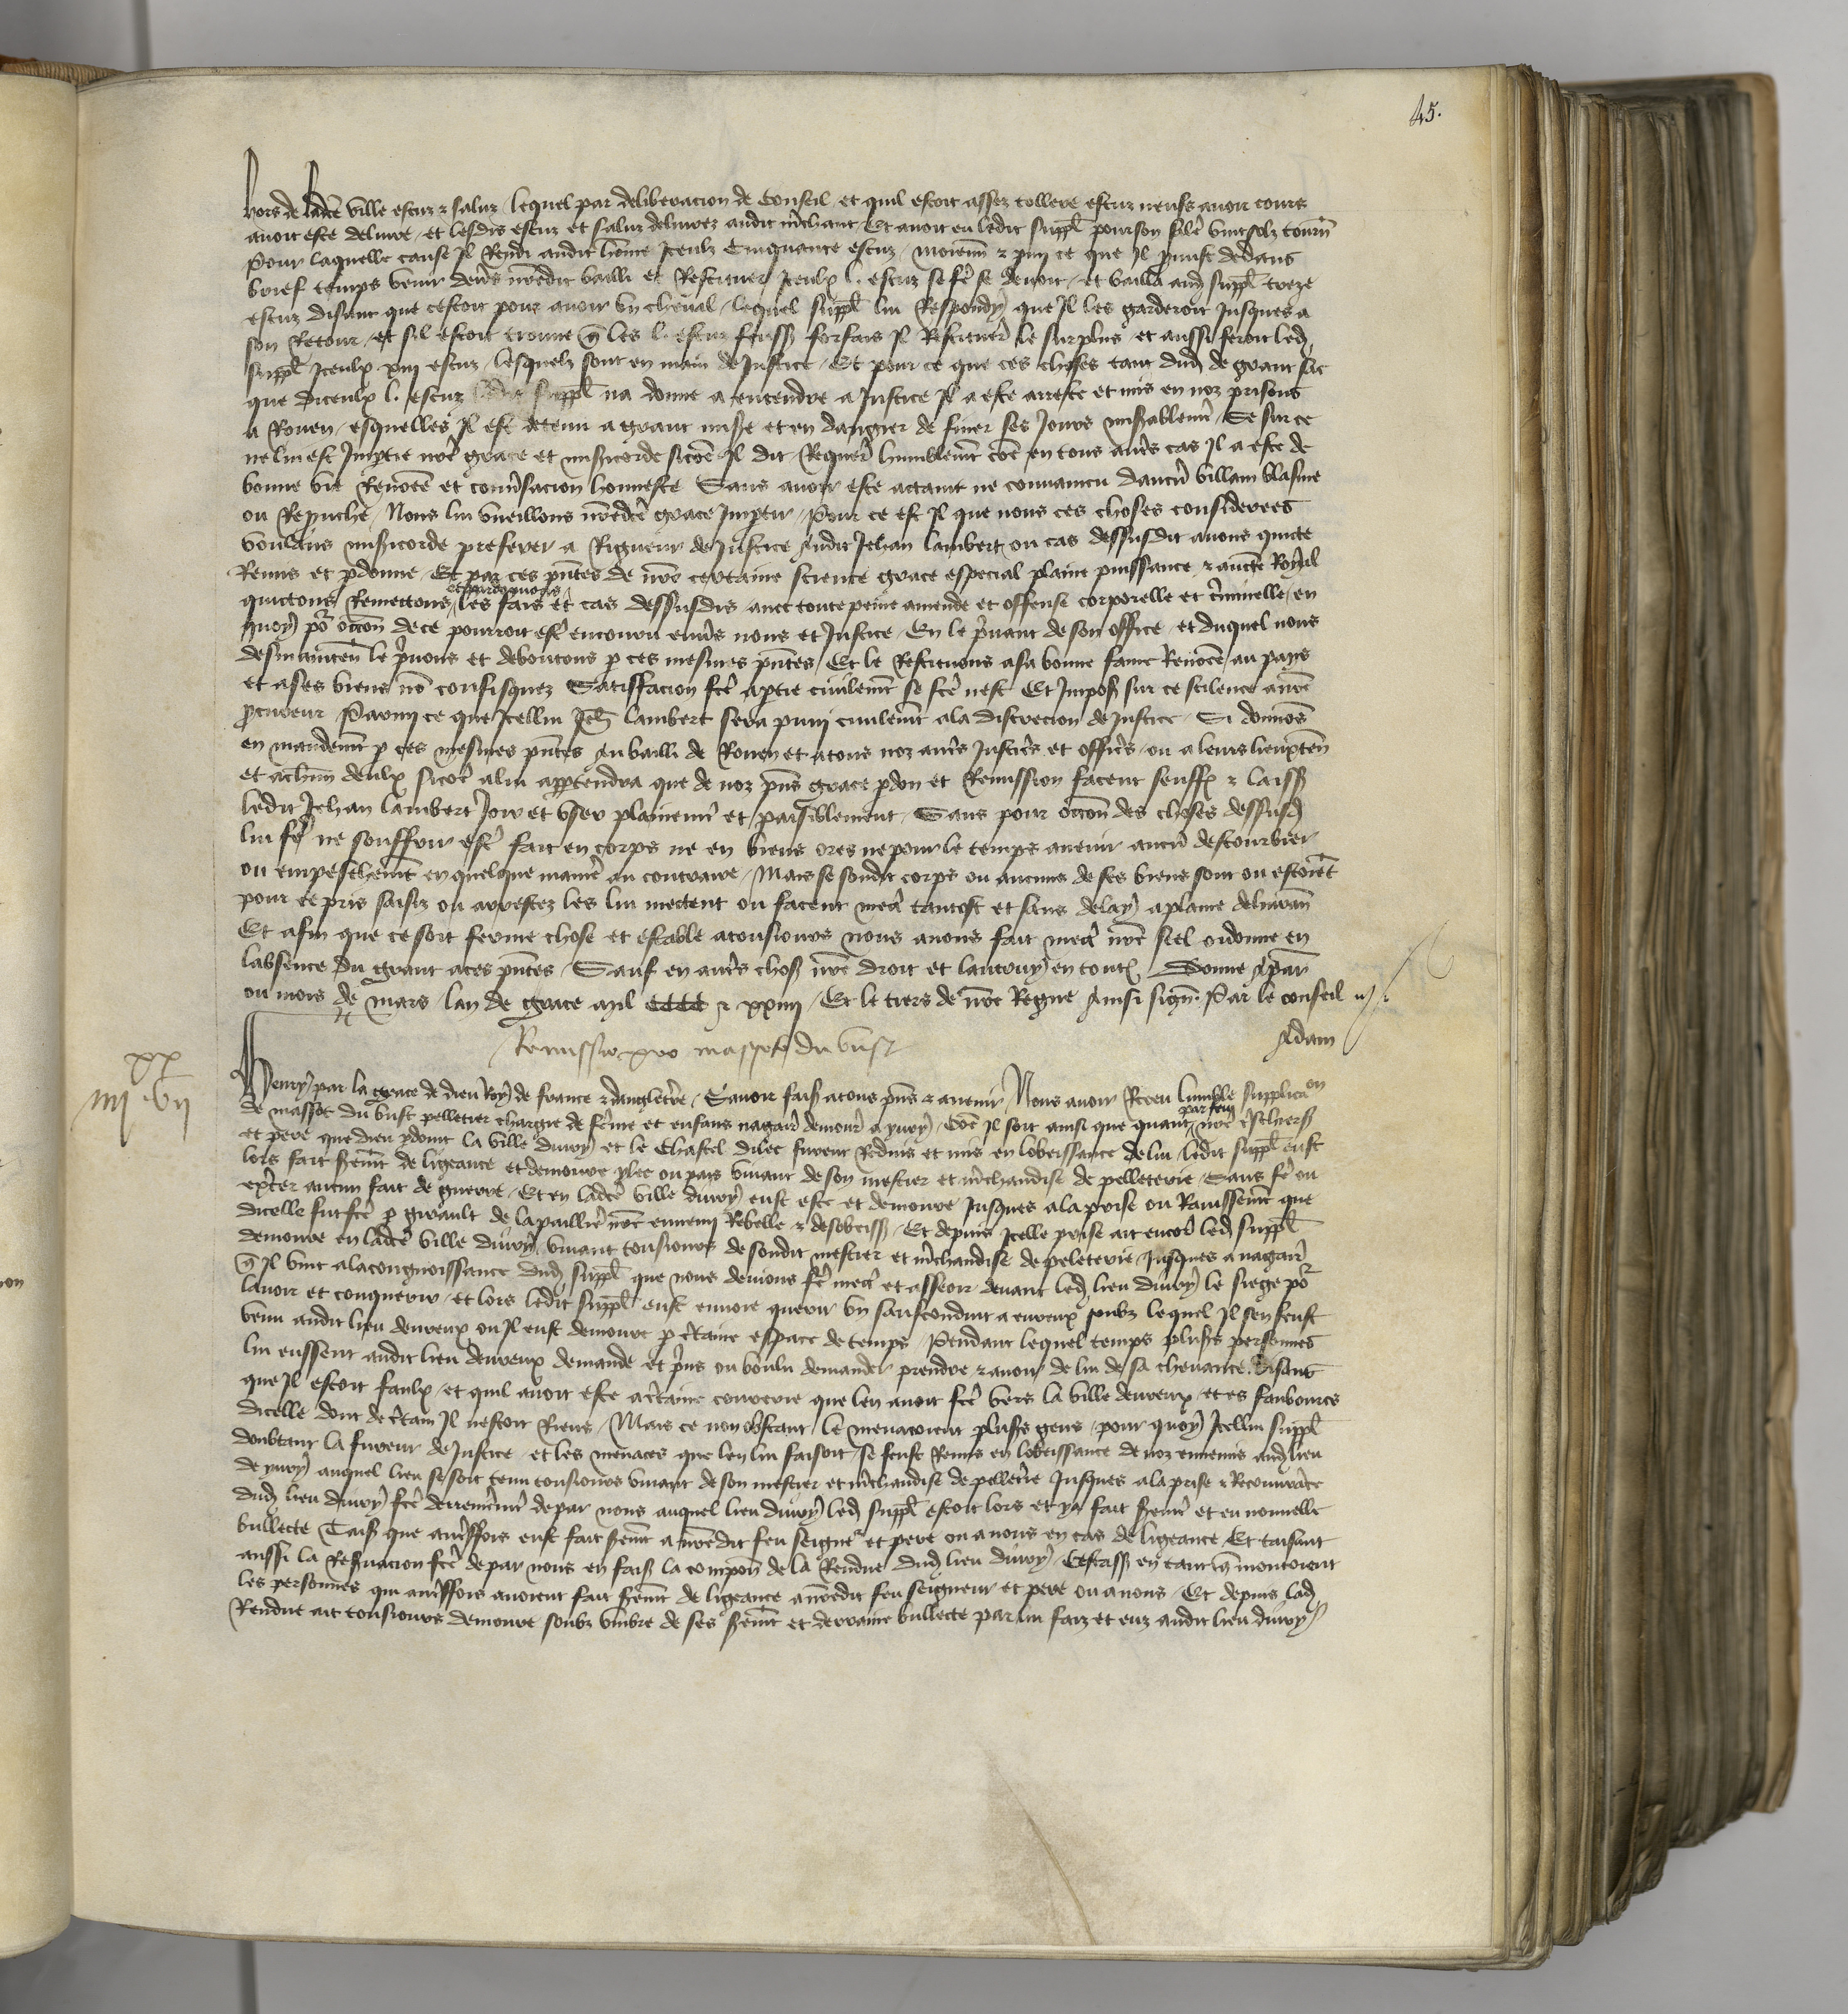 45.
hors de ladce ville escuz & saluz lequel par deliberacion de conseil et quil estoit assez tollere escuz neufs avoir cours
avoit este delivre et lesdis escuz et saluz delivrez audit mchant Et avoit eu ledit suppl pour son salre vint solz tourn
Pour laquelle cause Il Rendi audit home Iceulx Cinquante escuz moienn & pmy ce que Il pmist dedans
brief temps venir devs nredit bailli et Restituer Iceulx l. escuz se fe se devoit et bailla aud suppl treze
escuz disant que cestoit pour avoir un cheval lequel suppl lui Respondy que Il les garderoit Jusques a
son Retour et sil estoit trouve q les l. escuz feuss forfais Il Restituer le surplus et aussi feroit led
suppl Iceulx xiii escuz lesquelz sont en main de Justice Et pour ce que ces choses tant dud de grant sac
que diceulx l. escuz ledit suppl na donne a entendre a Justice Il a este arreste et mis en noz prisons
a Rouen esquelles Il est detenu a grant misere et en dangier de finer ses Jours misablemt Se sur ce
ne lui est Impartie nre grace et misicorde sicoe Il dit Requer humblemt coe en tous autres cas Il a este de
bonne vie Renomee et conversacion honneste Sans avoir este attaint ne convaincu daucun villain blasme
ou Reprouche Nous lui vueillons nredce grace Impartir Pour ce est Il que nous ces choses considerees
voulans misicorde preferer a Rigueur de Justice Audit Jehan lambert ou cas dessusdit avons quicte
Remis et pdonne Et par ces pntes de nre certaine science grace especial plaine puissance & aucte Royal
quictons Remectons et pardonnons les fais et cas dessusdis avec toute peine amende et offense corporelle et criminelle en
quoy por occon de ce pourroit estre encouru envers nous et Justice En le privant de son office et duquel nous
desmainten le privons et deboutons p ces mesmes pntes Et le Restituons a sa bonne fame Renomee au pays
et a ses biens no confisquez Satisfacion fce a ptie civilemt se fce nest Et Impos sur ce scilence a nre
pcureur Parmy ce que Icellui Jeh lambert sera puni civilemt a la discrecion de Justice Si donnos
en mandemt p ces mesmes pntes Au bailli de Rouen et a tous noz autres Justices et offics ou a leurs lieuxten
et a chun deulx sicoe a lui appartendra que de noz pns grace pdon et Remission facent seuffr & laiss
ledit Jehan lambert Joir et user plainemt et paisiblement Sans pour occon des choses dessusd
lui fe ne souffrir estre fait en corps ne en biens ores ne pour le temps avenir aucun destourbier
ou empeschemt en quelque maniere au contraire Mais se sondit corps ou aucuns de ses biens sont ou estoiet
pour ce pris saisiz ou arrestez les lui mectent ou facent mectre tantost et sans delay a plaine delivran
Et afin que ce soit ferme chose et estable a tousiours nous avons fait mectre nre seel ordonne en
labsence du grant a ces pntes Sauf en autres chos nre droit et lautruy en toutes Donne A par
ou mois de mars lan de grace mil CCCC & xxiiii Et le tiers de nre Regne Ainsi sign Par le conseil
Adam
Remissio pro massoto du bust
xx
iiii vii
Henry par la grace de dieu Roy de france & dangletre Savoir fais a tous pns & avenir Nous avoir Receu lumble supplicaon
de massot du bust pelletier chargie de feme et enfans nagair demour a yvry Coe Il soit ainsi que quant par feu nre treschiers
et pere que dieu pdoint la ville divry et le Chastel dilec furent Reduis et mis en lobeissance de lui ledit suppl eust
lors fait sermt de ligeance et demoure ylec ou pays vivant de son mestier et mchandise de pelleterie Sans fe ou
excer aucun fait de guerre Et en ladce ville divry eust este et demoure Jusques a la prise ou Ravissemt que
dicelle fut fce p girault de la pailliere nre ennemy Rebelle & desobeiss Et depuis Icelle prise ait encor led suppl
demoure en ladce ville divry vivant tousiours de sondit mestier et mchandise de peleterie Jusques a nagair
q Il vint a la congnoissance dud suppl que nous devions fe mectre et asseoir devant led lieu divry le siege por
lavoir et conquerir et lors ledit suppl eust envoie querir un saufconduit a evreux soubz lequel Il sen feust
venu audit lieu devreux ou Il eust demoure p ctaine espace de temps Pendant lequel temps plusrs personnes
lui eussent audit lieu devreux demande et prins ou voulu demander prendre & avoir de lui de sa chevance disant
que Il estoit faulx et quil avoit este a ctaine courcerie que len avoit fce vers la ville devreux et es faubourcs
dicelle dont de ctain Il nestoit Riens Mais ce non obstant le menacoient plusrs gens pour quoy Icellui suppl
doubtant la fureur de Justice et les menaces que len lui faisoit se feust Remis en lobeissance de noz ennemis aud lieu
de yvry auquel lieu se soit tenu tousiours vivant de son mestier et mchandise de pelletrie Jusques a la prise & Recouvrance
dud lieu divry fce derrenremt de par nous auquel lieu divry led suppl estoit lors et y a fait sermt et eu nouvelle
bullecte Tais que autreffois eust fait sermt a nredit feu seigneur et pere ou a nous en cas de ligeance Et taisant
aussi la Reservacion fce de par nous en fais la compon de la Rendue dud lieu divry Cestass en tant q montoient
les personnes qui autreffois avoient fait sermt de ligeance a nredit feu seigneur et pere ou a nous Et depuis lad
Rendue ait tousiours demoure soubz umbre de ses sermt et derraine bullecte par lui faiz et euz audit lieu divry